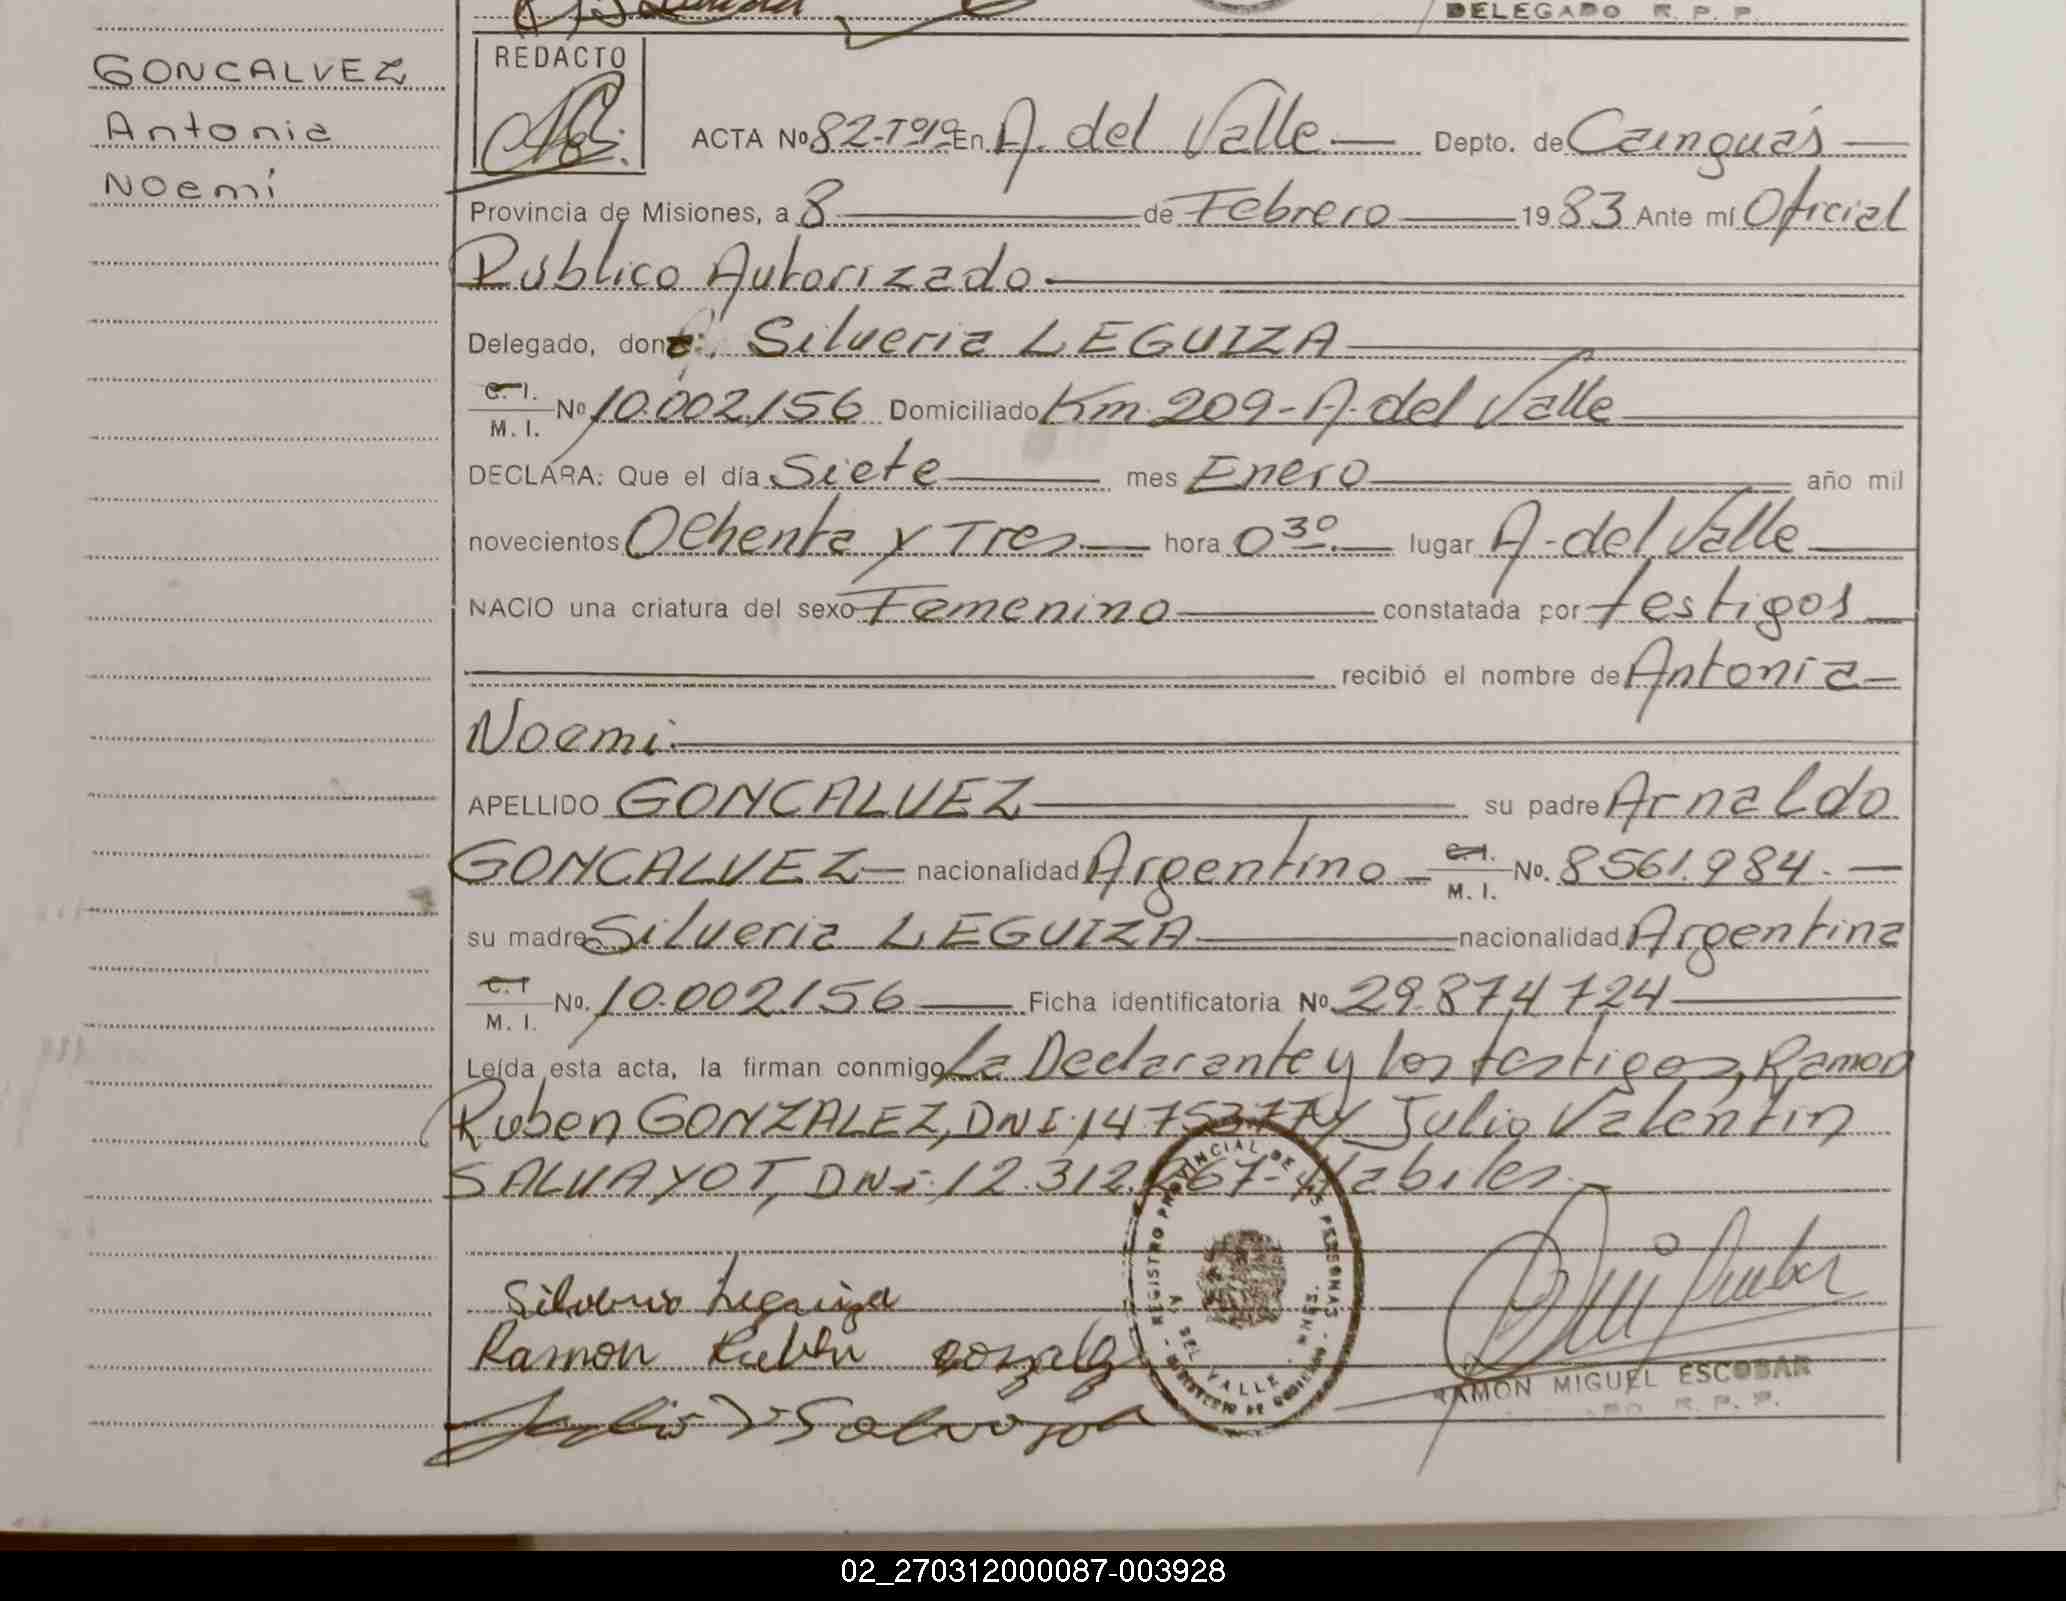 DELEGADO R. P. P.
GONCALVEZ
Antonia
Noemí
REDACTO
ACTA Nº 82-Tº1º En A. del Valle — Depto. de Cainguás —
Provincia de Misiones, a 8 — de Febrero — 1983 Ante mí Oficial
Público Autorizado.—
Delegado, dona: Silveria LEGUIZA —
C. I.
M. I. Nº 10.002.156 Domiciliado Km. 209 - A. del Valle —
DECLARA: Que el día Siete — mes Enero — año mil
novecientos Ochenta y Tres.— hora 0³⁰.— lugar A. del Valle —
NACIO una criatura del sexo Femenino — constatada por testigos —
— recibió el nombre de Antonia —
Noemi.—
APELLIDO GONCALVEZ — su padre Arnaldo
GONCALVEZ — nacionalidad Argentino — C.I. M. I. No. 8561.984. —
su madre Silveria LEGUIZA — nacionalidad Argentina
C. I
M. I. No. 10.002.156 — Ficha identificatoria Nº 29.874.724 —
Leída esta acta, la firman conmigo La Declarante y los testigos, Ramon
Ruben GONZALEZ, DNI. 14.753.77 y Julio Valentin
SALVAYOT, DNI. 12.312. 67- Habiles.—
Silveria Leguiza
Ramon Ruben gonzalez
Julio V Salvayot
REGISTRO PROVINCIAL DE LAS PERSONAS
A DEL VALLE - MNES.
MINISTERIO DE GOBIERNO
RAMON MIGUEL ESCOBAR
R. P. P.
02_270312000087-003928